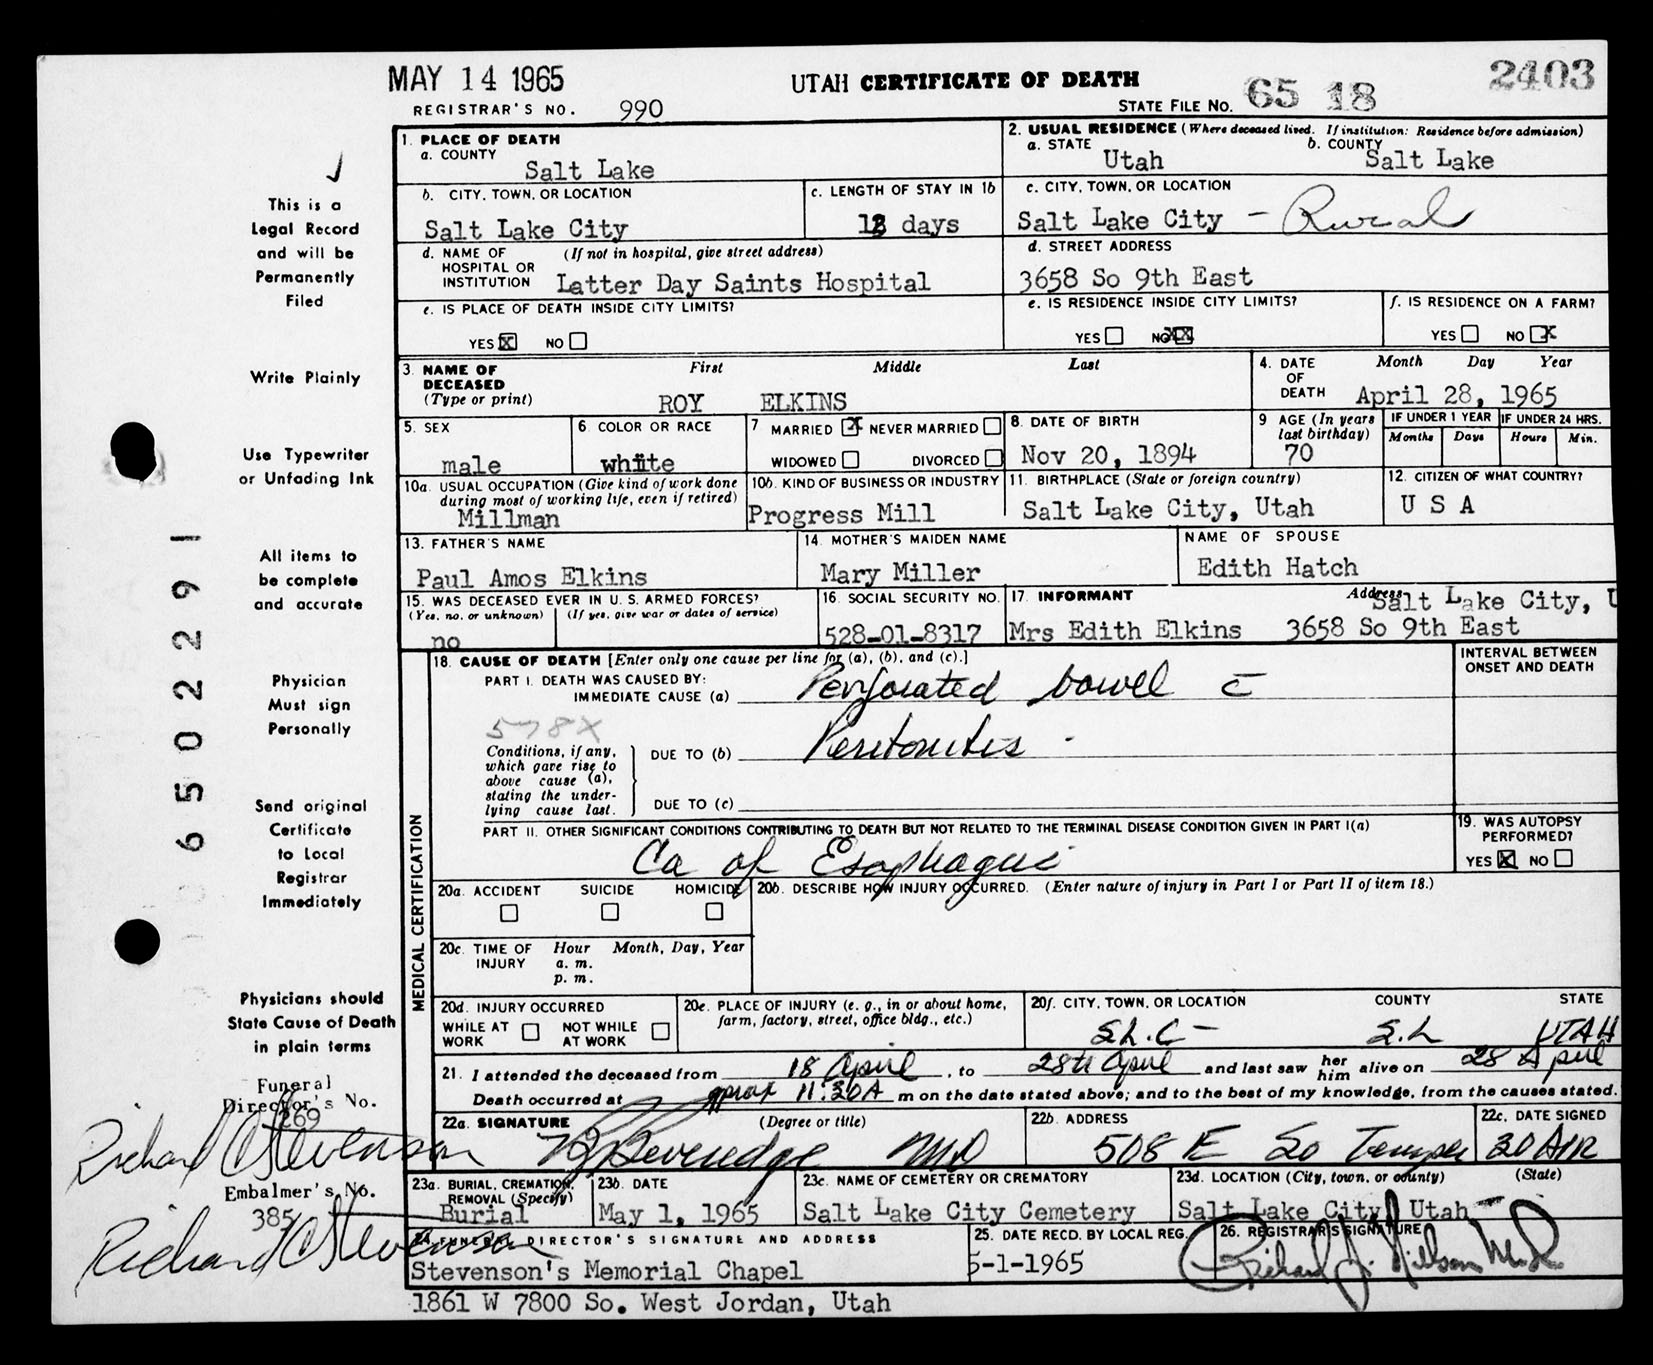 MAY 14 1965
UTAH CERTIFICATE OF DEATH
2403
REGISTRAR'S NO. 990
STATE FILE NO. 65 18
This is a
Legal Record
and will be
Permanently
Filed
Write Plainly
Use Typewriter
or Unfading Ink
All items to
be complete
and accurate
Physician
Must sign
Personally
Send original
Certificate
to Local
Registrar
Immediately
Physicians should
State Cause of Death
in plain terms
Funeral
Director's No.
269
Richard C Stevenson
Embalmer's No.
385
Richard C Stevenson
6502291
1. PLACE OF DEATH
a. COUNTY
Salt Lake
2. USUAL RESIDENCE (Where deceased lived. If institution: Residence before admission)
a. STATE Utah
b. COUNTY Salt Lake
b. CITY, TOWN, OR LOCATION
Salt Lake City
c. LENGTH OF STAY IN 1b
days
c. CITY, TOWN, OR LOCATION
Salt Lake City - Rural
d. NAME OF HOSPITAL OR INSTITUTION (If not in hospital, give street address)
Latter Day Saints Hospital
d. STREET ADDRESS
3658 So 9th East
e. IS PLACE OF DEATH INSIDE CITY LIMITS?
YES X NO
e. IS RESIDENCE INSIDE CITY LIMITS?
YES NO XX
f. IS RESIDENCE ON A FARM?
YES NO X
3. NAME OF DECEASED (Type or print)
First Middle Last
ROY ELKINS
4. DATE OF DEATH
Month Day Year
April 28, 1965
5. SEX
male
6. COLOR OR RACE
white
7 MARRIED X NEVER MARRIED
WIDOWED DIVORCED
8. DATE OF BIRTH
Nov 20, 1894
9 AGE (In years last birthday)
70
IF UNDER 1 YEAR
Months Days
IF UNDER 24 HRS.
Hours Min.
10a. USUAL OCCUPATION (Give kind of work done during most of working life, even if retired)
Millman
10b. KIND OF BUSINESS OR INDUSTRY
Progress Mill
11. BIRTHPLACE (State or foreign country)
Salt Lake City, Utah
12. CITIZEN OF WHAT COUNTRY?
U S A
13. FATHER'S NAME
Paul Amos Elkins
14. MOTHER'S MAIDEN NAME
Mary Miller
NAME OF SPOUSE
Edith Hatch
15. WAS DECEASED EVER IN U. S. ARMED FORCES?
(Yes, no, or unknown) (If yes, give war or dates of service)
no
16. SOCIAL SECURITY NO.
528-01-8317
17. INFORMANT Address Salt Lake City, U
Mrs Edith Elkins 3658 So 9th East
MEDICAL CERTIFICATION
18. CAUSE OF DEATH [Enter only one cause per line for (a), (b), and (c).]
INTERVAL BETWEEN ONSET AND DEATH
PART I. DEATH WAS CAUSED BY:
IMMEDIATE CAUSE (a) Perforated bowel c̄
578X
Conditions, if any, which gave rise to above cause (a), stating the underlying cause last.
DUE TO (b) Peritonitis
DUE TO (c)
PART II. OTHER SIGNIFICANT CONDITIONS CONTRIBUTING TO DEATH BUT NOT RELATED TO THE TERMINAL DISEASE CONDITION GIVEN IN PART I(a)
Ca of Esophagus
19. WAS AUTOPSY PERFORMED?
YES X NO
20a. ACCIDENT SUICIDE HOMICIDE
20b. DESCRIBE HOW INJURY OCCURRED. (Enter nature of injury in Part I or Part II of item 18.)
20c. TIME OF INJURY Hour Month, Day, Year
a. m.
p. m.
20d. INJURY OCCURRED
WHILE AT WORK NOT WHILE AT WORK
20e. PLACE OF INJURY (e. g., in or about home, farm, factory, street, office bldg., etc.)
20f. CITY, TOWN, OR LOCATION COUNTY STATE
S.L.C- S.L UTAH
21. I attended the deceased from 18 April, to 28th April and last saw her him alive on 28 April
Death occurred at aprox 11:30A m on the date stated above; and to the best of my knowledge, from the causes stated.
22a. SIGNATURE (Degree or title)
Beveredge MD
22b. ADDRESS
508 E So Temple
22c. DATE SIGNED
30 APR
23a. BURIAL, CREMATION, REMOVAL (Specify)
Burial
23b. DATE
May 1, 1965
23c. NAME OF CEMETERY OR CREMATORY
Salt Lake City Cemetery
23d. LOCATION (City, town, or county) (State)
Salt Lake City Utah
24. FUNERAL DIRECTOR'S SIGNATURE AND ADDRESS
Stevenson's Memorial Chapel
1861 W 7800 So. West Jordan, Utah
25. DATE RECD. BY LOCAL REG.
5-1-1965
26. REGISTRAR'S SIGNATURE